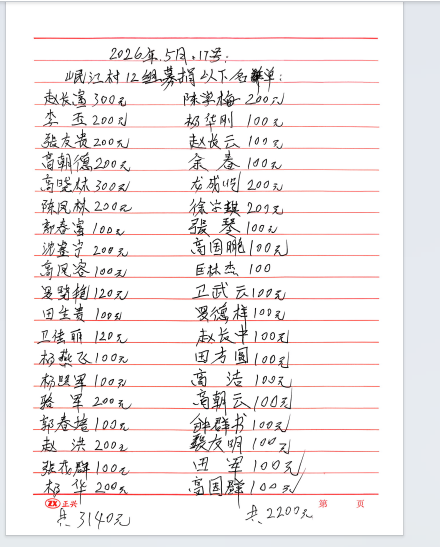 2026年.5月.17号:
岷江村12组募捐以下名单:
赵长富300元 陈学梅200元
李 玉200元 杨华刚 100元
张友贵200元 赵长云 100元
高朝德200元 余 春 100元
高晓林300元 龙成 200元
陈凤林200元 徐宗琪200元
郭春富100元 张 琴100元
沈 宇 200元 高国鹏100元
高凤容100元 巨林杰 100
罗 120元 卫武云100元
田生贵 100元 罗德样100元
卫佳丽 120元 赵长中100元
杨燕飞100元 田方圆100元
杨 军100元 高 洁 100元
骆 军 200元 高朝云100元
郭春 100元 钟群书100元
赵 洪 200元 张友明100元
张 群100元 田 军 100元
杨 华 200元 高国群100元
正兴 第 页
共3140元 共2200元